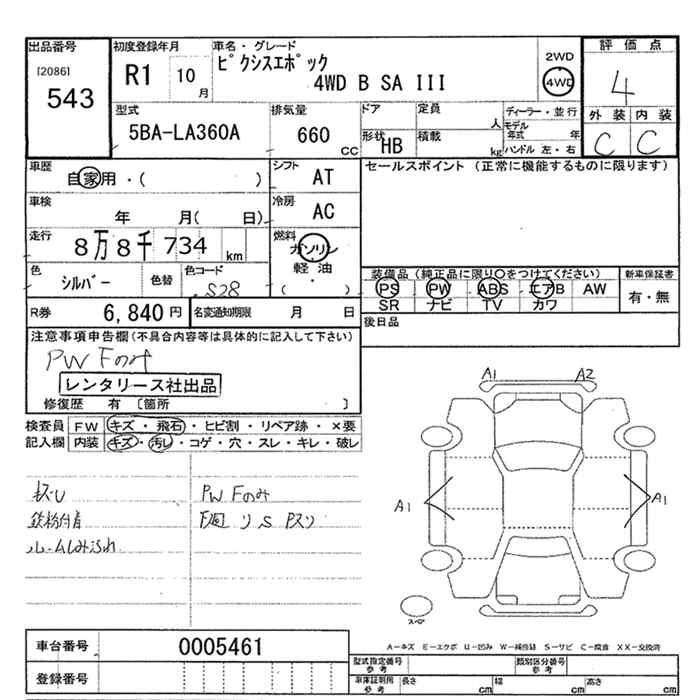 出品番号
[2086]
543
初度登録年月
R1 10月
車名・グレード
ピクシスエポック
4WD B SA III
2WD
4WD
評価点
4
外装 内装
C C
型式
5BA-LA360A
排気量
660 CC
ドア
定員 人
形状 HB
積載 kg
ディーラー・並行
モデル年式 年
ハンドル 左・右
車歴
自家用・( )
シフト
AT
車検
年 月( 日)
冷房
AC
走行
8万8千734 km
燃料
ガソリン
軽油
( )
色
シルバー
色替
色コード
S28
セールスポイント (正常に機能するものに限ります)
装備品(純正品に限り○をつけてください)
PS PW ABS エアB AW
SR ナビ TV カワ
新車保証書
有・無
R券 6,840円
名変通知期限 月 日
後日品
注意事項申告欄(不具合内容等は具体的に記入して下さい)
PW Fのみ
レンタリース社出品
修復歴 有 [箇所 ]
検査員記入欄
FW キズ・飛石・ヒビ割・リペア跡・×要
内装 キズ・汚レ・コゲ・穴・スレ・キレ・破レ
PW Fのみ
鉄粉付着
ルームしみふれ
A1 A2
A1 A1
スペア
A-キズ E-エクボ U-凹み W-補修跡 S-サビ C-腐食 XX-交換済
車台番号 0005461
登録番号
型式指定番号 参考
類別区分番号 参考
車庫証明用 参考
長さ cm 幅 cm 高さ cm